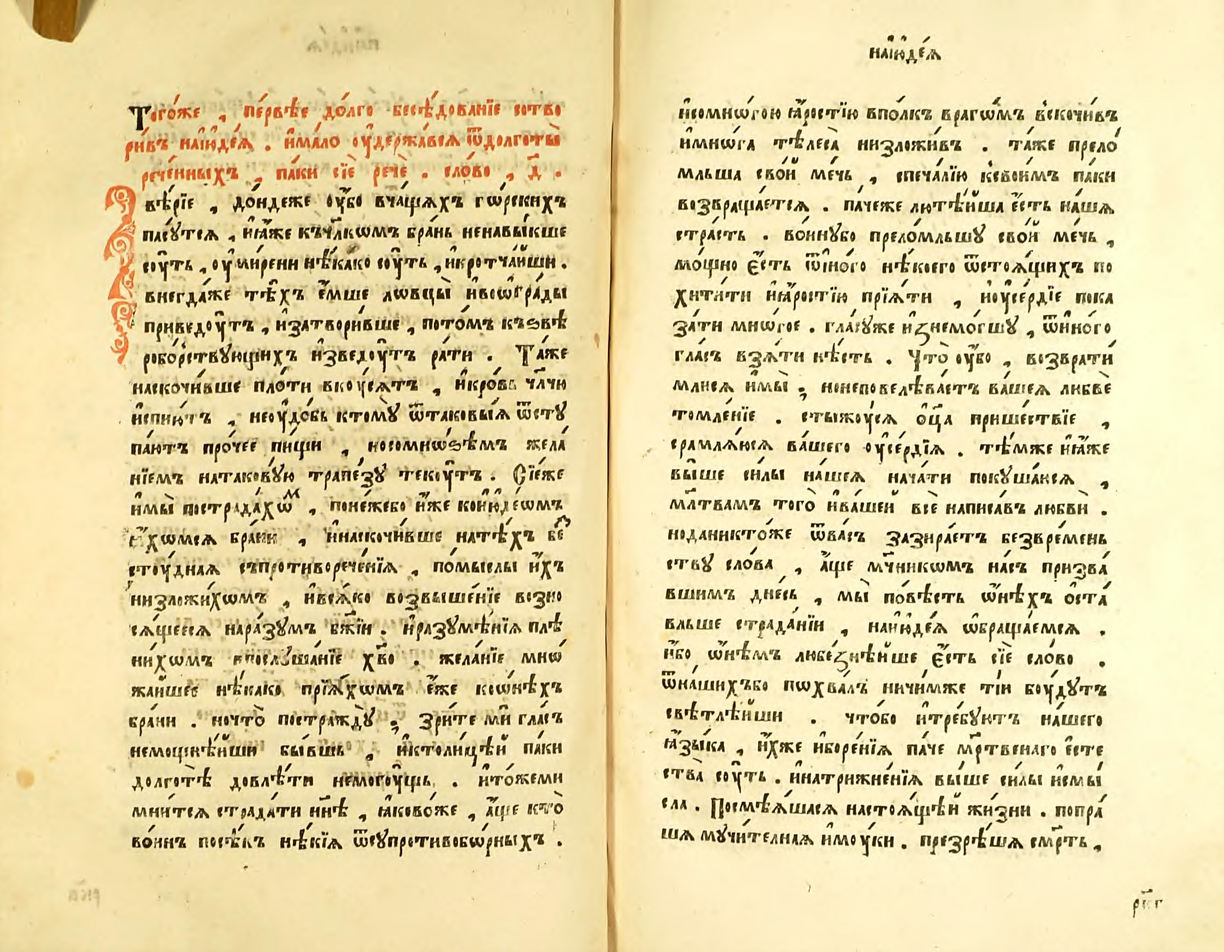 Того́же , пе́рвѣе до́лго бесѣ́дованїе сотво
ри́въ наїюде́ѧ . има́ло оу҆держа́всѧ ѿдолготы̀
рече́нныхъ , па́ки сїѐ речѐ . сло́во , д҃ .
Ѕвѣ́рїе , до́ндеже оу҆́бо вча́щѧхъ го́рскихъ
пасу́тсѧ , и҆ꙗ҆́же къчл҃кѡмъ бра́нь ненавы́кше
соу́ть , оу҆мире́ни нѣ́како соу́ть , и҆кротча́йши .
внегда́же тѣ́хъ є҆́мше ловцы̀ и҆вогра́ды
приведоу́тъ , и҆затвори́вше , пото́мъ къѕвѣ
робо́рствующихъ и҆зведоу́тъ ра́ти . Та́же
наскочи́вше пло́ти вкоу́сѧтъ , и҆кро́вь чл҃чи
и҆спию́тъ , неоу҆до́бь ктомꙋ̀ ѿтаковы́ѧ ѿстꙋ
па́ютъ про́чее пи́щи , носомно́ѕѣмъ жела́
нїемъ натаковꙋ́ю трапе́зꙋ текоу́тъ . Сїе́же
и҆мы̀ пострада́хѡм , поне́жебо и҆́же коїюде́ѡмъ
ꙗ҆́хѡмсѧ бра́ни , и҆наскочи́вше натѣ́хъ бе
стоу́днаѧ съпротиворече́нїѧ , по́мыслы и҆́хъ
низложи́хѡмъ , и҆всѧ́ко возвыше́нїе возно
сѧ́щеесѧ нара́зꙋмъ бж҃їи . и҆разꙋмѣ́нїѧ плѣ
ни́хѡмъ впослꙋша́нїе хв҃о . жела́нїе мно
жа́йшее нѣ́како прїѧ́хѡмъ є҆́же коѡ҆нѣ́хъ
бра́ни . ночто̀ постра́ждꙋ ; зри́те ми гла́съ
немощнѣ́йши бы́вшь , и҆ктоли́цѣй па́ки
долготѣ̀ довлѣ́ти немогоу́щь . и҆то́жеми
мни́тсѧ страда́ти нн҃ѣ , ꙗ҆ково́же , а҆́ще кто̀
во́инъ посѣ́къ нѣ́кїѧ ѿсꙋпротивобо́рныхъ .
наїюде́ѧ
и҆сомно́гою ꙗ҆́ростїю впо́лкъ враго́мъ вскочи́въ
и҆мно́га тѣлеса̀ низложи́въ . та́же прело
мльша сво́й ме́чь , спеча́лїю ксвои́мъ па́ки
возвраща́етсѧ . па́чеже лютѣ́йша є҆́сть на́шѧ
стра́сть . во́инꙋбо прело́мльшꙋ сво́й ме́чь ,
мо́щно є҆́сть ѿи҆но́го нѣ́коего ѿстоѧ́щихъ по
хи́тити и҆ꙗ҆́ростїю прїѧ́ти , и҆оу҆се́рдїе пока
за́ти мно́гое . гла́сꙋже и҆знемо́гшꙋ , ѿи҆но́го
гла́съ взѧ́ти нѣ́сть . Что̀ оу҆́бо , возврати́
млисѧ и҆мы̀ ; нонеповелѣва́етъ ва́шеѧ любве
томле́нїе . стыжоу́сѧ ѻ҆ц҃а прише́ствїе ,
срамлѧ́юсѧ ва́шего оу҆се́рдїѧ . тѣ́мже и҆ꙗ҆́же
вы́ше си́лы на́шеѧ нача́ти покꙋша́юсѧ ,
мл҃твамъ того̀ и҆ва́шей всѐ написа́въ любвѝ .
ноданикто́же ѿва́съ зазира́етъ безвре́мень
ствꙋ сло́ва , а҆́ще мч҃никѡмъ на́съ призва́
вшимъ дне́сь , мы̀ по́вѣсть ѡ҆нѣ́хъ ѡ҆ста́
вльше страда́нїи , наїюде́ѧ ѡ҆браща́емсѧ .
и҆́бо ѡ҆нѣ́мъ любе́знѣйше є҆́сть сїѐ сло́во .
ѿна́шихъбо похва́лъ ничи́мже ті́и боу́дꙋтъ
свѣтлѣ́йши . что́бо и҆тре́бꙋютъ на́шего
ꙗ҆зы́ка , и҆́хже и҆боре́нїѧ па́че мр҃твенаго є҆сте
ства̀ соу́ть . и҆натрижне́нїѧ вы́ше си́лы и҆мы́
сла . Посмѣѧ́шасѧ настоѧ́щѣй жи́зни . попра́
шѧ мꙋчи́телнаѧ и҆моу́ки . презрѣ́шѧ сме́рть ,
рк҃г